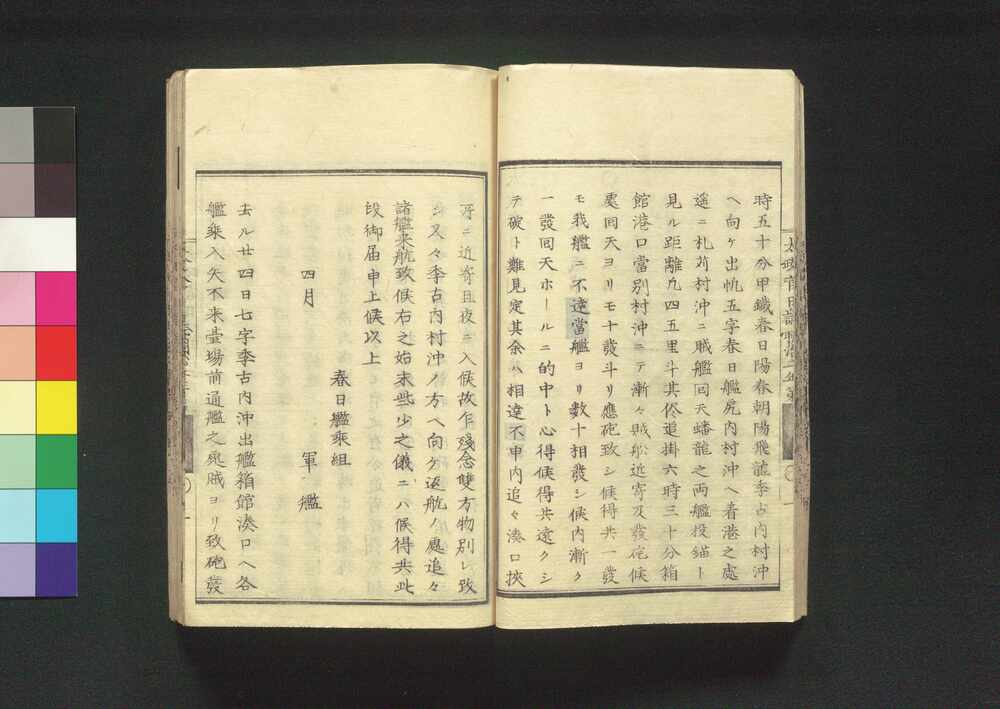 時五十分甲鐵春日陽春朝陽飛龍季古内村沖
へ向ケ出帆五字春日艦尻内村沖へ着港之處
遥ニ札苅村沖ニ賊艦囘天蟠龍之両艦投錨ト
見ル距離凡四五里斗其侭追掛六時三十分箱
館港口當別村沖ニテ漸々賊船近寄及發砲候
處囘天ヨリモ十發斗リ應砲致シ候得共一發
モ我艦ニ不達當艦ヨリ數十相發シ候内漸ク
一發囘天ホールニ的中ト心得候得共遠クシ
テ破ト難見定其余ハ相違不申内追々湊口挾
所ニ近寄且夜ニ入候故乍殘念雙方物別レ致
シ又々季古内村沖ノ方ヘ向ケ返航ノ處追々
諸艦来航致候右之始末些少之儀ニハ候得共此
段御届申上候以上
四月 軍艦
春日艦乘組
去ル廿四日七字季古内沖出艦箱館湊口ヘ各
艦乘入矢不来臺場前通艦之處賊ヨリ致砲發
太政官日誌明治二年第